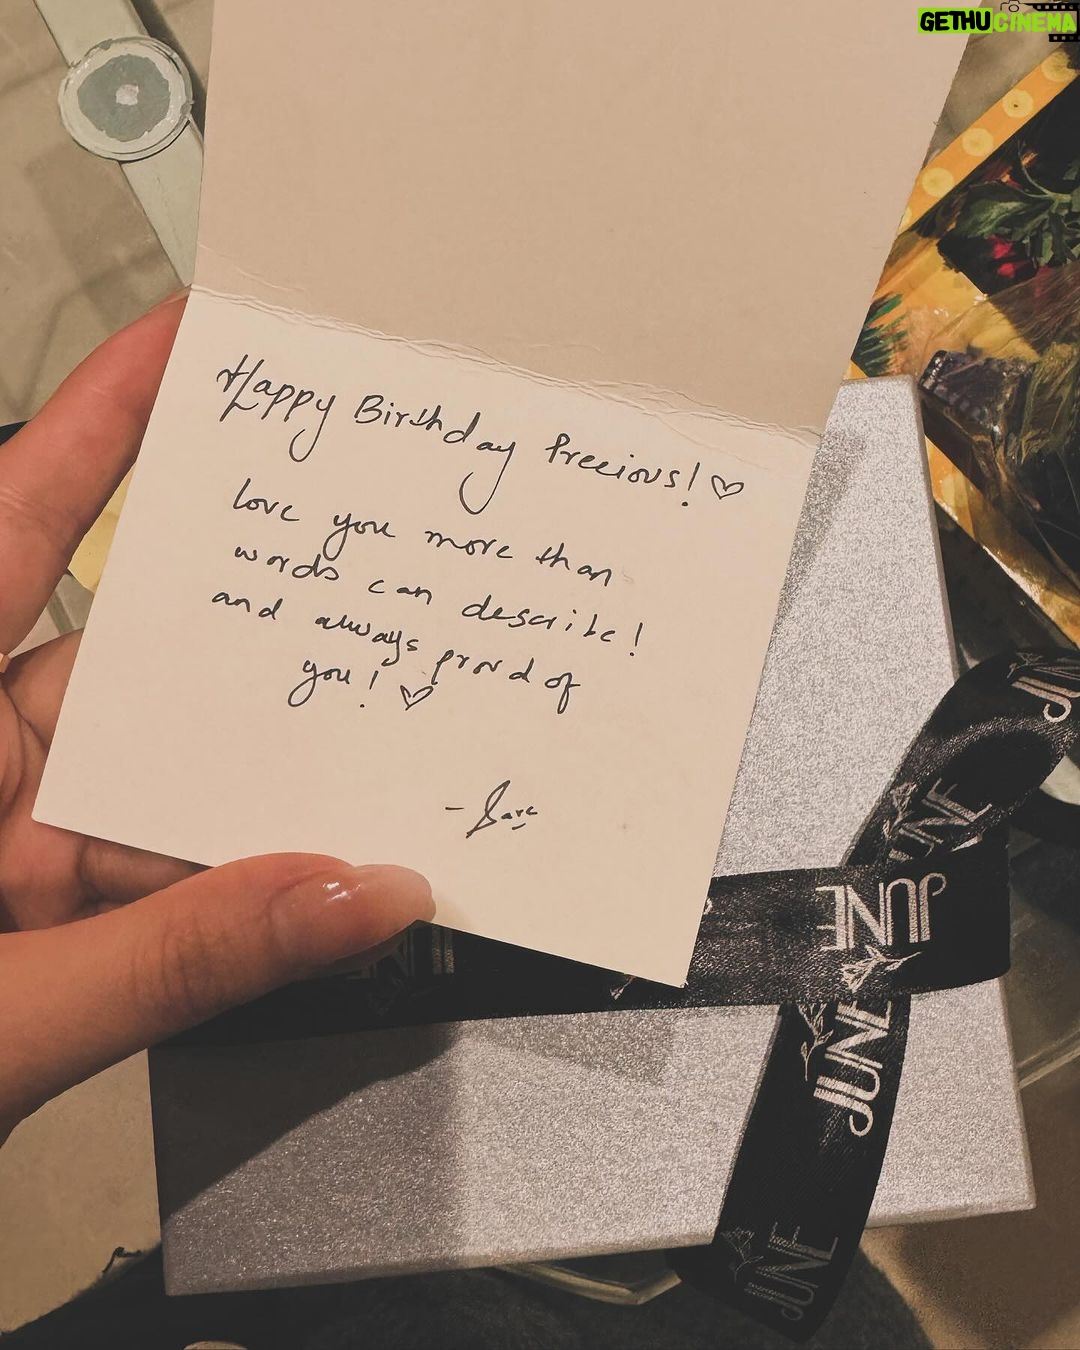 GETHUCINEMA
Happy Birthday Precious! ♡
love you more than
words can describe!
and always proud of
you! ♡
JUNE
JUNE
JUNE
JUNE
JUNE